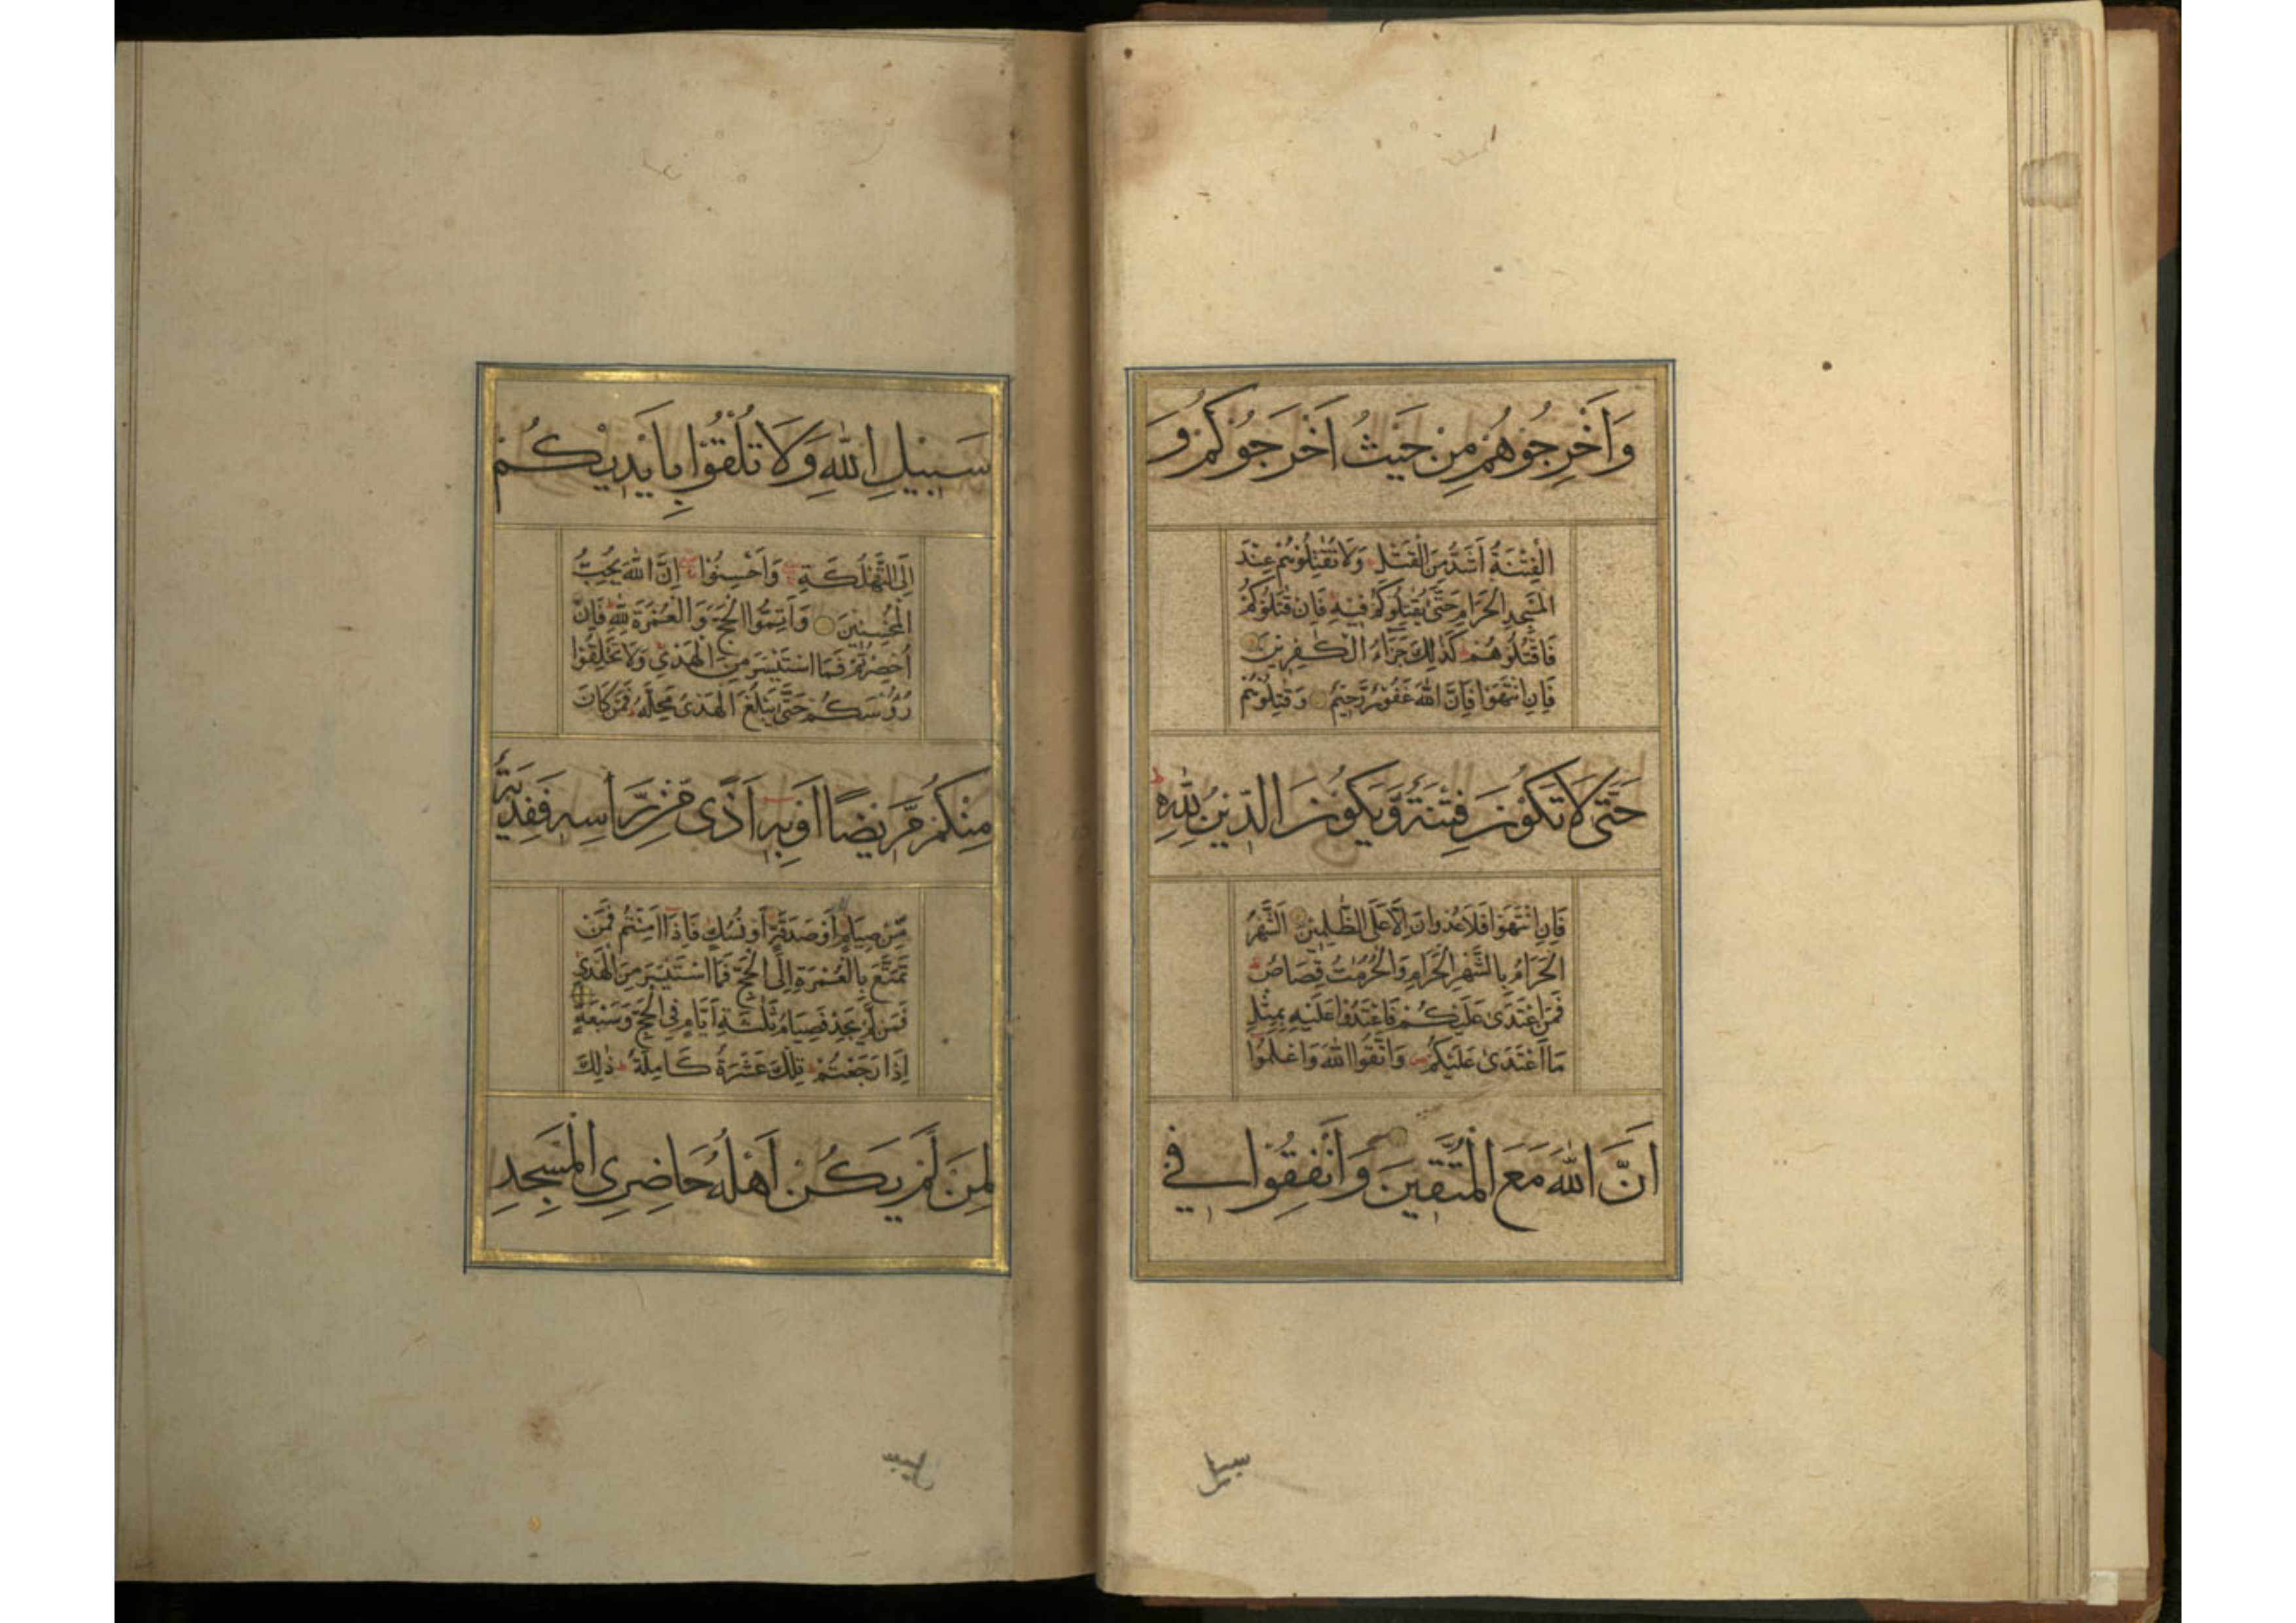 وَاَخْرِجُوْهُمْ مِنْ حَيْثُ اَخْرَجُوْكُمْ وَ
الْفِتْنَةُ اَشَدُّ مِنَ الْقَتْلِ ط وَلَا تُقٰتِلُوْهُمْ عِنْدَ
الْمَسْجِدِ الْحَرَامِ حَتّٰى يُقٰتِلُوْكُمْ فِيْهِ فَاِنْ قٰتَلُوْكُمْ
فَاقْتُلُوْهُمْ ط كَذٰلِكَ جَزَآءُ الْكٰفِرِيْنَ
فَاِنِ انْتَهَوْا فَاِنَّ اللّٰهَ غَفُوْرٌ رَّحِيْمٌ وَقٰتِلُوْهُمْ
حَتّٰى لَا تَكُوْنَ فِتْنَةٌ وَّيَكُوْنَ الدِّيْنُ لِلّٰهِ ط
فَاِنِ انْتَهَوْا فَلَا عُدْوَانَ اِلَّا عَلَى الظّٰلِمِيْنَ اَلشَّهْرُ
الْحَرَامُ بِالشَّهْرِ الْحَرَامِ وَالْحُرُمٰتُ قِصَاصٌ ط
فَمَنِ اعْتَدٰى عَلَيْكُمْ فَاعْتَدُوْا عَلَيْهِ بِمِثْلِ
مَا اعْتَدٰى عَلَيْكُمْ وَاتَّقُوا اللّٰهَ وَاعْلَمُوْا
اَنَّ اللّٰهَ مَعَ الْمُتَّقِيْنَ وَاَنْفِقُوْا فِيْ
سبيل
سَبِيْلِ اللّٰهِ وَلَا تُلْقُوْا بِاَيْدِيْكُمْ
اِلَى التَّهْلُكَةِ وَاَحْسِنُوْا اِنَّ اللّٰهَ يُحِبُّ
الْمُحْسِنِيْنَ وَاَتِمُّوا الْحَجَّ وَالْعُمْرَةَ لِلّٰهِ ط فَاِنْ
اُحْصِرْتُمْ فَمَا اسْتَيْسَرَ مِنَ الْهَدْيِ وَلَا تَحْلِقُوْا
رُءُوْسَكُمْ حَتّٰى يَبْلُغَ الْهَدْىُ مَحِلَّهٗ ط فَمَنْ كَانَ
مِنْكُمْ مَّرِيْضًا اَوْ بِهٖ اَذًى مِّنْ رَّاْسِهٖ فَفِدْيَةٌ
مِّنْ صِيَامٍ اَوْ صَدَقَةٍ اَوْ نُسُكٍ فَاِذَا اَمِنْتُمْ فَمَنْ
تَمَتَّعَ بِالْعُمْرَةِ اِلَى الْحَجِّ فَمَا اسْتَيْسَرَ مِنَ الْهَدْيِ
فَمَنْ لَّمْ يَجِدْ فَصِيَامُ ثَلٰثَةِ اَيَّامٍ فِى الْحَجِّ وَسَبْعَةٍ
اِذَا رَجَعْتُمْ ط تِلْكَ عَشَرَةٌ كَامِلَةٌ ط ذٰلِكَ
لِمَنْ لَّمْ يَكُنْ اَهْلُهٗ حَاضِرِى الْمَسْجِدِ